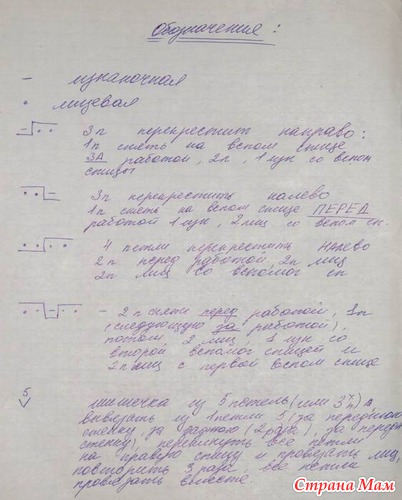 Обозначения:
– изнаночная
• лицевая
3п перекрестить направо:
1п снять на вспом спице
ЗА работой, 2л, 1 изн со вспом
спицы
3п перекрестить налево
1п снять на вспом спице ПЕРЕД
работой 1 изн, 2 лиц со вспом сп.
4 петли перекрестить налево
2п перед работой, 2п лиц
2п лиц со вспомог сп
– 2п снять перед работой, 1п
(следующую за работой),
потом, 2 лиц, 1 изн со
второй вспомог спицей и
2п лиц с первой вспом спице
5
шишечка из 5 петель (или 3х)
вывязать из 1 петли 5 (за переднюю
стенку, за заднюю (2 раза), за
стенку), перекинуть все петли
на правую спицу и провязать лиц,
повторить 3 раза, все петли
провязать вместе
Страна Мам